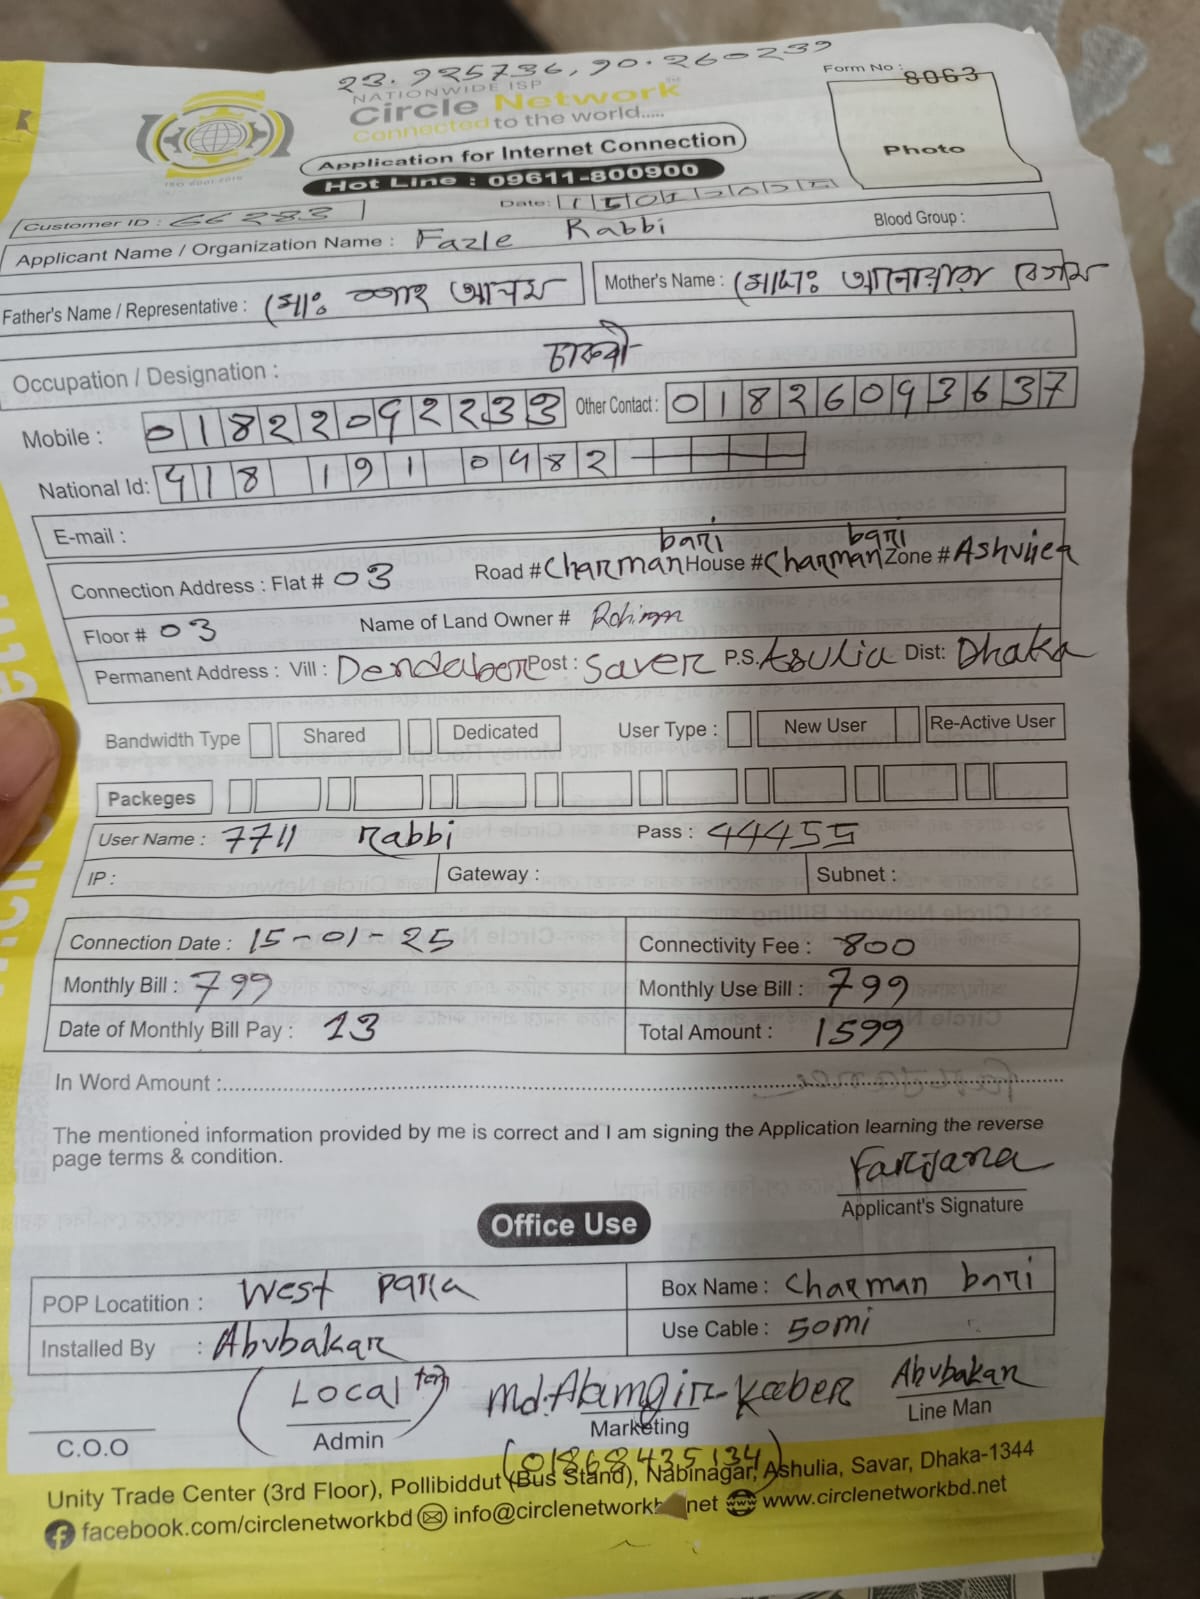 23.925736, 90.260239
NATIONWIDE ISP
Circle Network
Connected to the world.....
Form No : 8063
Photo
Application for Internet Connection
Hot Line : 09611-800900
Customer ID : 66283
Date: 15012025
Applicant Name / Organization Name : Fazle Rabbi
Blood Group :
Father's Name / Representative : মোঃ শাহ আলম
Mother's Name : মোছাঃ আনোয়ারা বেগম
Occupation / Designation : চাকুরী
Mobile : 01822092233 Other Contact : 01826093637
National Id: 418 191 0482
E-mail :
Connection Address : Flat # 03 Road # Charman bari House # Charman bari Zone # Ashuliea
Floor # 03 Name of Land Owner # Rohimm
Permanent Address : Vill : Dendabor Post : Saver P.S. Asulia Dist: Dhaka
Bandwidth Type Shared Dedicated User Type : New User Re-Active User
Packeges
User Name : 7711 Rabbi Pass : 44455
IP : Gateway : Subnet :
Connection Date : 15-01-25 Connectivity Fee : 800
Monthly Bill : 799 Monthly Use Bill : 799
Date of Monthly Bill Pay : 13 Total Amount : 1599
In Word Amount :
The mentioned information provided by me is correct and I am signing the Application learning the reverse
page terms & condition.
Farijana
Applicant's Signature
Office Use
POP Locatition : West para Box Name : Charman bari
Installed By : Abubakar Use Cable : 50mi
(Local Md. Kaber Abubakar
C.O.O Admin Marketing Line Man
(01868435134)
Unity Trade Center (3rd Floor), Pollibiddut (Bus Stand), Nabinagar, Ashulia, Savar, Dhaka-1344
facebook.com/circlenetworkbd info@circlenetworkb net www.circlenetworkbd.net